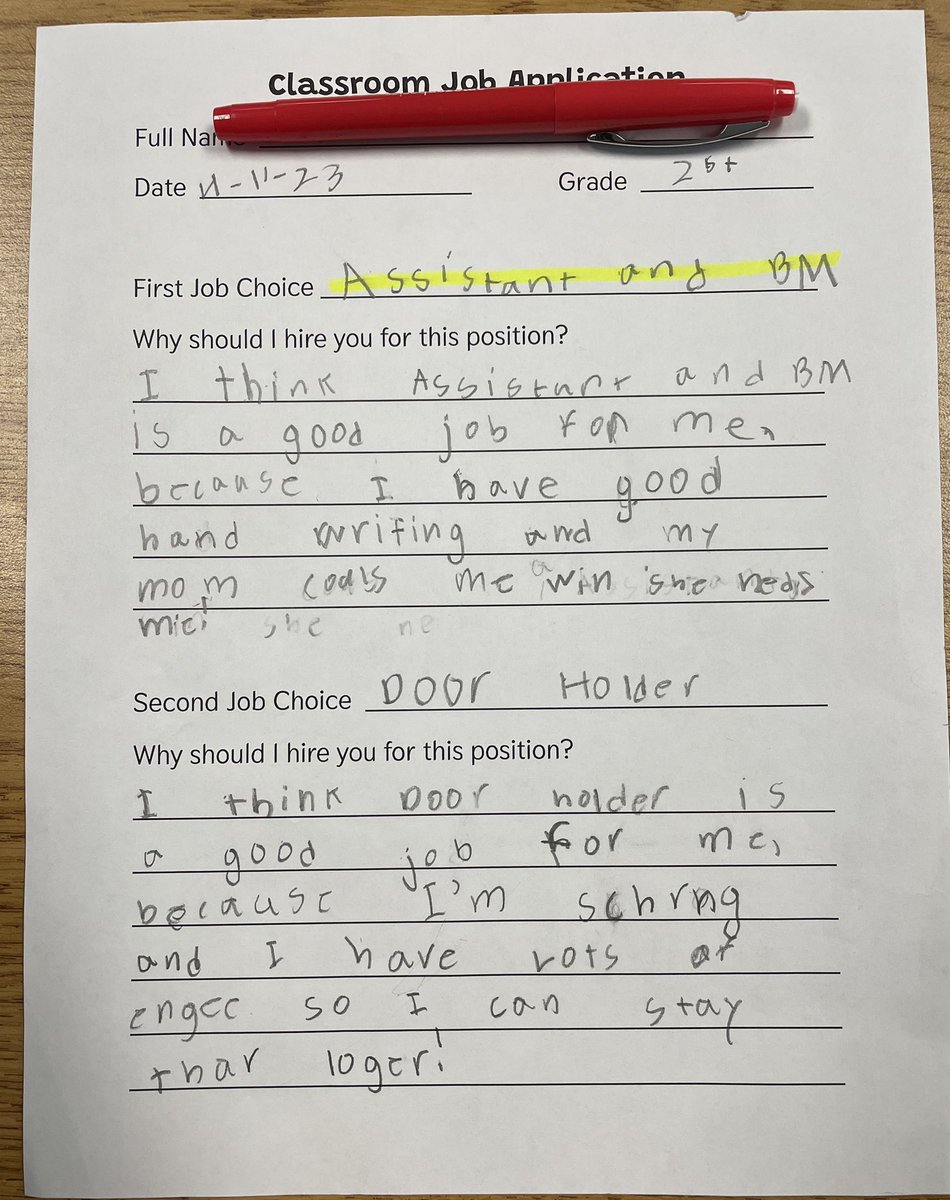 Classroom Job Application
Full Name
Date 11-11-23 Grade 2st
First Job Choice Assistant and BM
Why should I hire you for this position?
I think Assistant and BM
is a good job for me,
because I have good
hand writing and my
mom coals me win she neds
she ne
Second Job Choice Door Holder
Why should I hire you for this position?
I think Door holder is
a good job for me,
because I'm schrng
and I have lots of
engee so I can stay
thar loger!